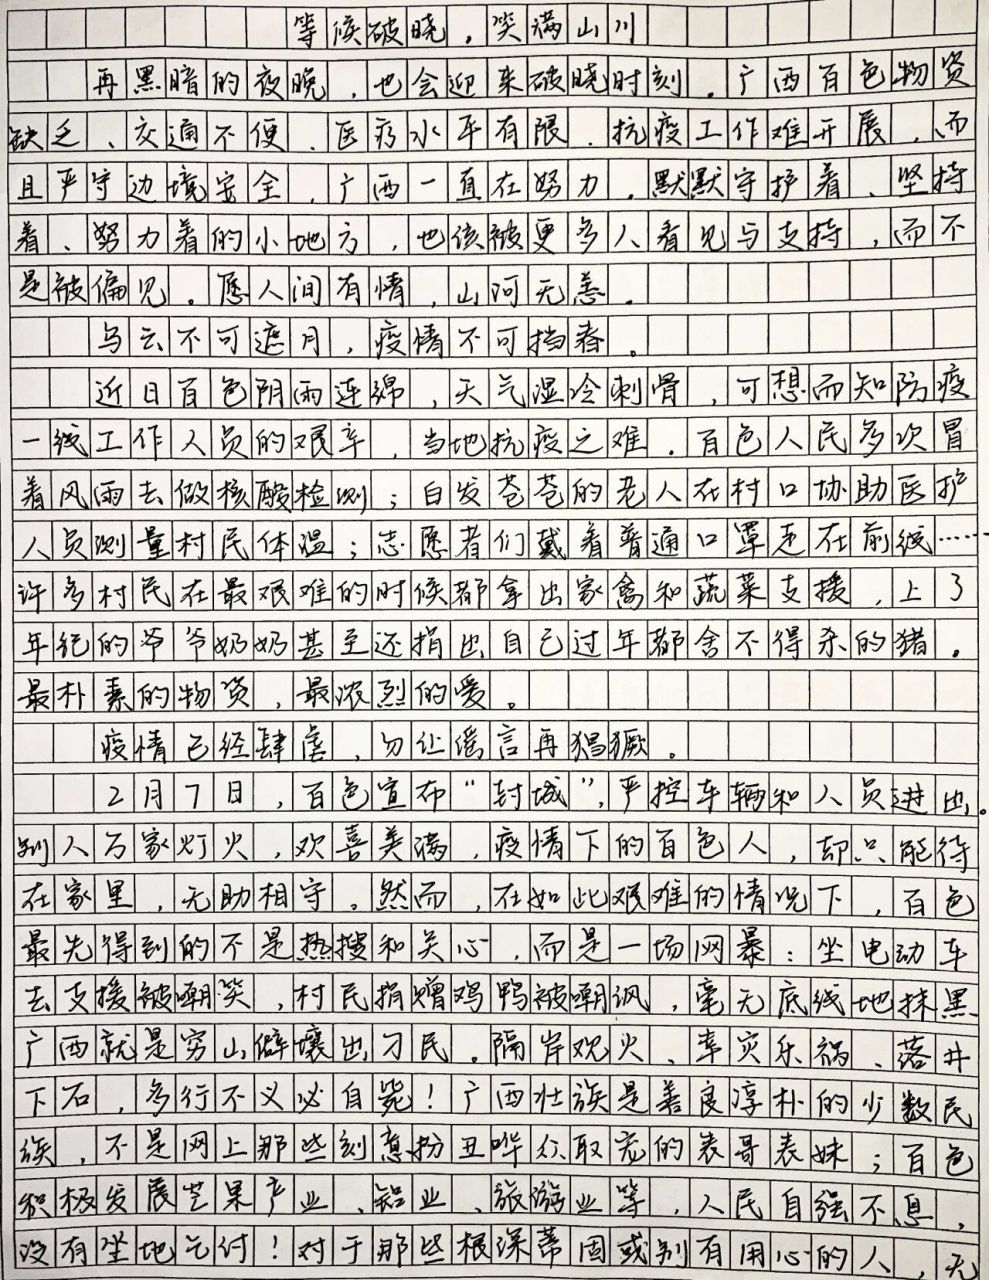 等候破晓，笑满山川
再黑暗的夜晚，也会迎来破晓时刻。广西百色物资
缺乏、交通不便、医疗水平有限，抗疫工作难开展，而
且严守边境安全，广西一直在努力，默默守护着、坚持
着、努力着的小地方，也该被更多人看见与支持，而不
是被偏见。愿人间有情，山河无恙。
乌云不可遮月，疫情不可挡春。
近日百色阴雨连绵，天气湿冷刺骨，可想而知防疫
一线工作人员的艰辛，当地抗疫之难。百色人民多次冒
着风雨去做核酸检测；白发苍苍的老人在村口协助医护
人员测量村民体温；志愿者们戴着普通口罩走在前线……
许多村民在最艰难的时候都拿出家禽和蔬菜支援，上了
年纪的爷爷奶奶甚至还捐出自己过年都舍不得杀的猪。
最朴素的物资，最浓烈的爱。
疫情已经肆虐，勿让谣言再猖獗。
2月7日，百色宣布“封城”，严控车辆和人员进出。
别人万家灯火，欢喜美满，疫情下的百色人，却只能待
在家里，无助相守。然而，在如此艰难的情况下，百色
最先得到的不是热搜和关心，而是一场网暴：坐电动车
去支援被嘲笑，村民捐赠鸡鸭被嘲讽，毫无底线地抹黑
广西就是穷山僻壤出刁民。隔岸观火、幸灾乐祸、落井
下石，多行不义必自毙！广西壮族是善良淳朴的少数民
族，不是网上那些刻意扮丑哗众取宠的表哥表妹；百色
积极发展芒果产业、铝业、旅游业等，人民自强不息，
没有坐地乞付！对于那些根深蒂固或别有用心的人，无